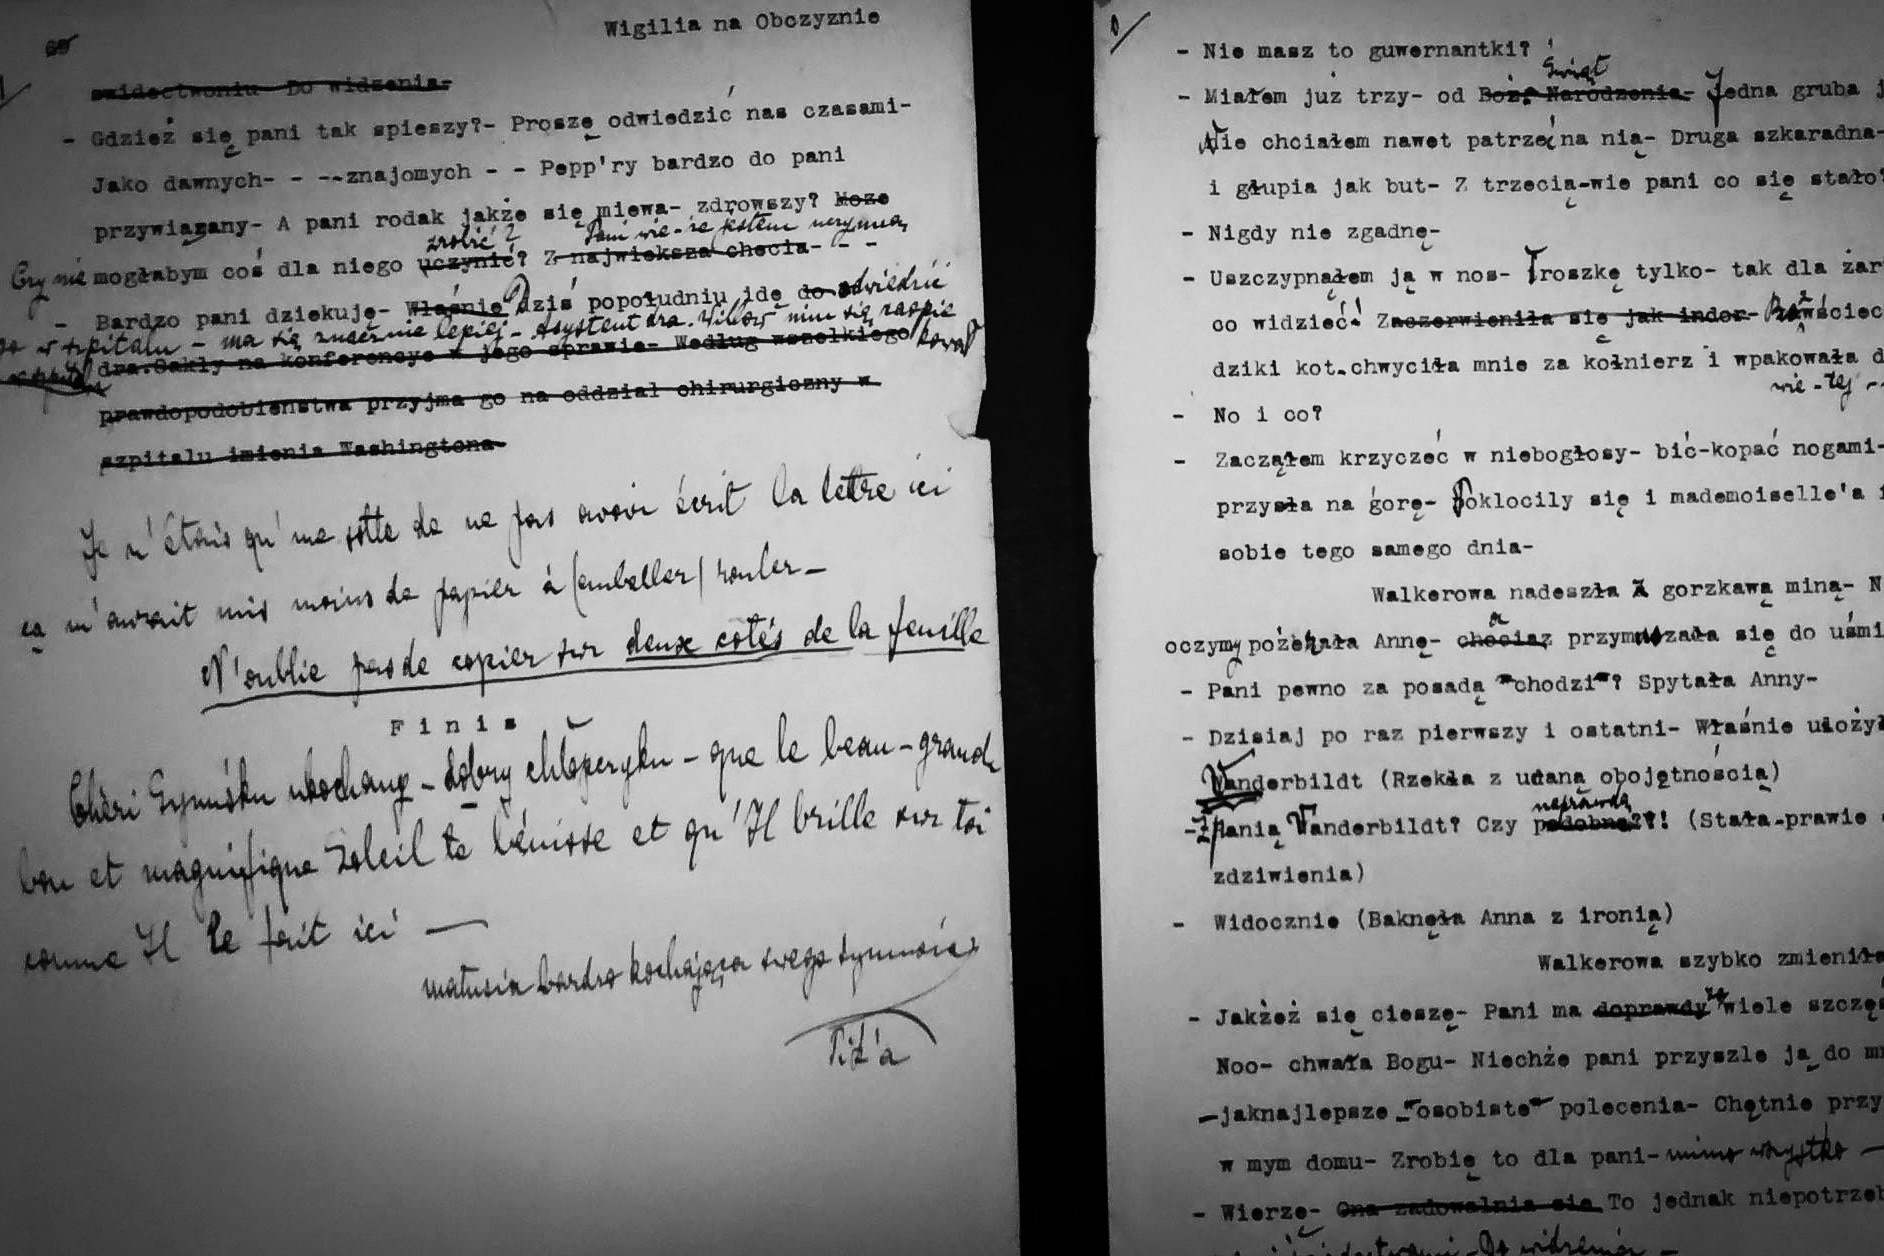 60
Wigilia na Obczyznie
swidectwoniu Do widzenia-
- Gdzież się pani tak spieszy?- Proszę odwiedzić nas czasami-
Jako dawnych- - --znajomych - - Pepp'ry bardzo do pani
przywiązany- A pani rodak jakże się miewa- zdrowszy? Moze
zrobić? Pani wie-że jestem
Czy nie mogłabym coś dla niego uczynić? Z najwieksza checia- - -
- Bardzo pani dziekuję- Właśnie Dziś popołudniu idę do odwiedzić
go w szpitalu - ma się znacznie lepiej - Asystent dra. nim się zaopie
kował
dra.Oakly na konferencye w jego sprawie- Według wszelkiego
prawdopodobienstwa przyjma go na oddzial chirurgiczny w
szpitalu imienia Washingtona-
Je n'étais qu'une sotte de ne pas avoir écrit la lettre ici
ça m'aurait mis moins de papier à (emballer) rouler -
N'oublie pas de copier sur deux cotés de la feuille
F i n i s
Chèri ukochany - dobry - que le beau - grand
bon et magnifique Soleil te bénisse et qu'Il brille sur toi
comme Il le fait ici -
matusia bardzo kochająca swego
- Nie masz to guwernantki?
Świąt
- Miałem już trzy- od Boż. Narodzenia- Jedna gruba j
Nie chciałem nawet patrzeć na nią- Druga szkaradna-
i głupia jak but- Z trzecią-wie pani co się stało?
- Nigdy nie zgadnę-
- Uszczypnąłem ją w nos- Troszkę tylko- tak dla żar
co widzieć! Zaczerwieniła się jak indor- Rozwściec
dziki kot.chwyciła mnie za kołnierz i wpakowała d
wie - tej -
- No i co?
- Zacząłem krzyczeć w niebogłosy- bić-kopać nogami-
przysła na górę- Poklocily się i mademoiselle'a i
sobie tego samego dnia-
Walkerowa nadeszła z gorzkawą miną- N
oczymy pożehała Annę- chociaz przymuszała się do uśmi
- Pani pewno za posadą "chodzi"? Spytała Anny-
- Dzisiaj po raz pierwszy i ostatni- Właśnie ułożył
Vanderbildt (Rzekła z udaną obojętnością)
naprawdę
- Z Panią Vanderbildt? Czy podobna??! (Stała-prawie
zdziwienia)
- Widocznie (Baknęła Anna z ironią)
Walkerowa szybko zmieniła
- Jakżeż się cieszę- Pani ma doprawdy za wiele szczęś
Noo- chwała Bogu- Niechże pani przyszle ją do m
-jaknajlepsze -"osobiste" polecenia- Chętnie przy
w mym domu- Zrobię to dla pani- mimo wszystko -
- Wierzę- Ona zadowalnia sie To jednak niepotrzeb
- Do widzenia -